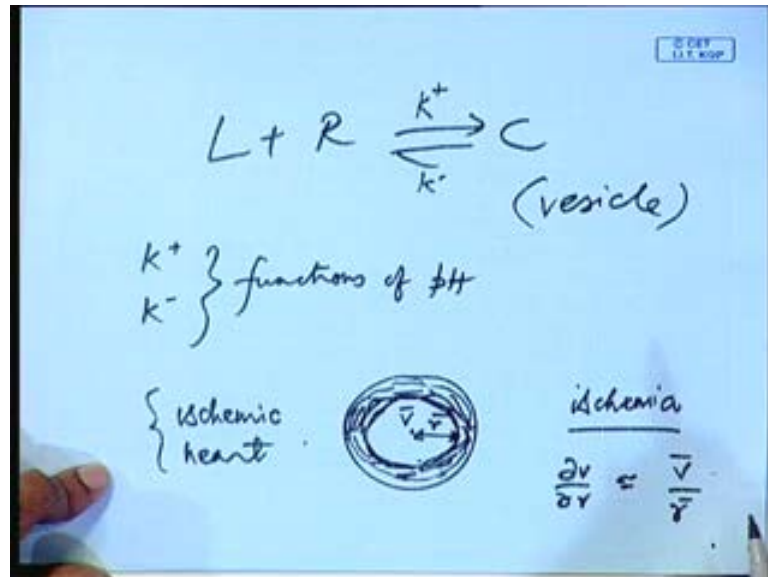 © CET
I.I.T. KGP
L + R ⇌ C
k+
k-
(vesicle)
k+
k-
} functions of pH
{ ischemic
heart
V̄
r̄
ischemia
∂v/∂r ≃ V̄/r̄